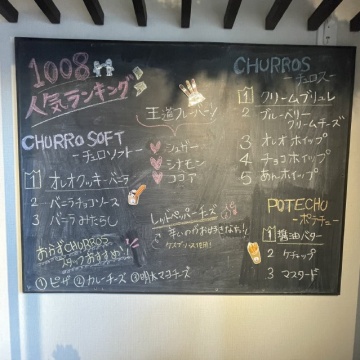 1008
人気ランキング
CHURRO SOFT
ーチュロソフトー
1 オレオクッキーバニラ
2 バニラチョコソース
3 バニラみたらし
おかずCHURROS
スタッフおすすめ!!
①ピザ ②カレーチーズ ③明太マヨチーズ
王道フレーバー
シュガー
シナモン
ココア
レッドペッパーチーズ
辛いのがお好きな方!!
CHURROS
ーチュロスー
1 クリームブリュレ
2 ブルーベリー
クリームチーズ
3 オレオホイップ
4 チョコホイップ
5 あんホイップ
POTECHU
ーポテチューー
1 醤油バター
2 ケチャップ
3 マスタード